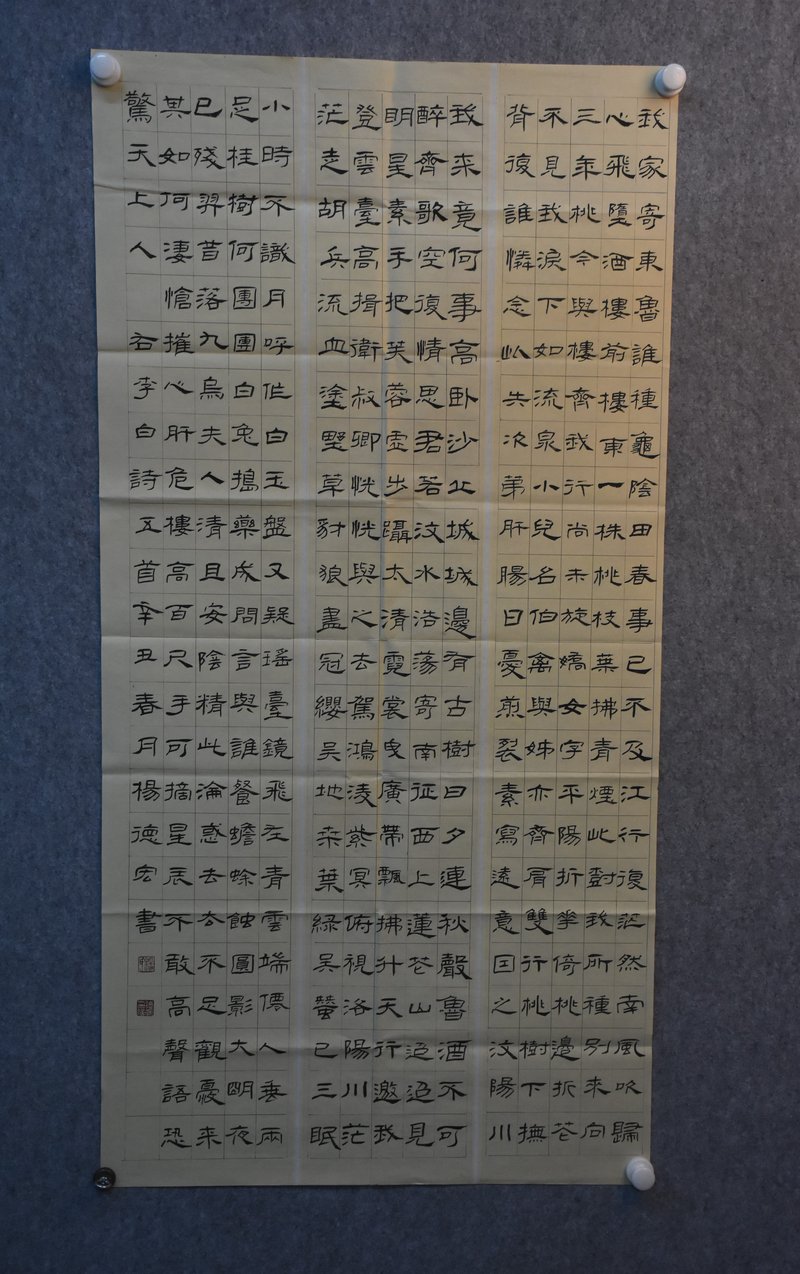 我家寄東魯誰種龜陰田春事已不及江行復茫然南風吹歸
心飛墮酒樓前樓東一株桃枝葉拂青煙此尌我所種別來向
三年桃今與樓齊我行尚未旋嬌女字平陽折華倚桃邊折花
不見我淚下如流泉小兒名伯禽與姊亦齊肩雙行桃樹下撫
背復誰憐念此失次弟肝腸日憂煎裂素寫遠意因之汶陽川
我來竟何事高臥沙丘城城邊有古樹日夕連秋聲魯酒不可
醉齊歌空復情思君若汶水浩蕩寄南征西上蓮花山迢迢見
明星素手把芙蓉虛步躡太清霓裳曳廣帶飄拂升天行邀我
登雲臺高揖衛叔卿恍恍與之去駕鴻凌紫冥俯視洛陽川茫
茫走胡兵流血塗野草豺狼盡冠纓吳地桑葉綠吳蠶已三眠
小時不識月呼作白玉盤又疑瑤臺鏡飛在青雲端僊人垂兩
足桂樹何團團白兔搗藥成問言與誰餐蟾蜍蝕圓影大明夜
已殘羿昔落九烏天人清且安陰精此淪惑去去不足觀憂來
其如何淒愴摧心肝危樓高百尺手可摘星辰不敢高聲語恐
驚天上人 右李白詩五首辛丑春月楊德宏書